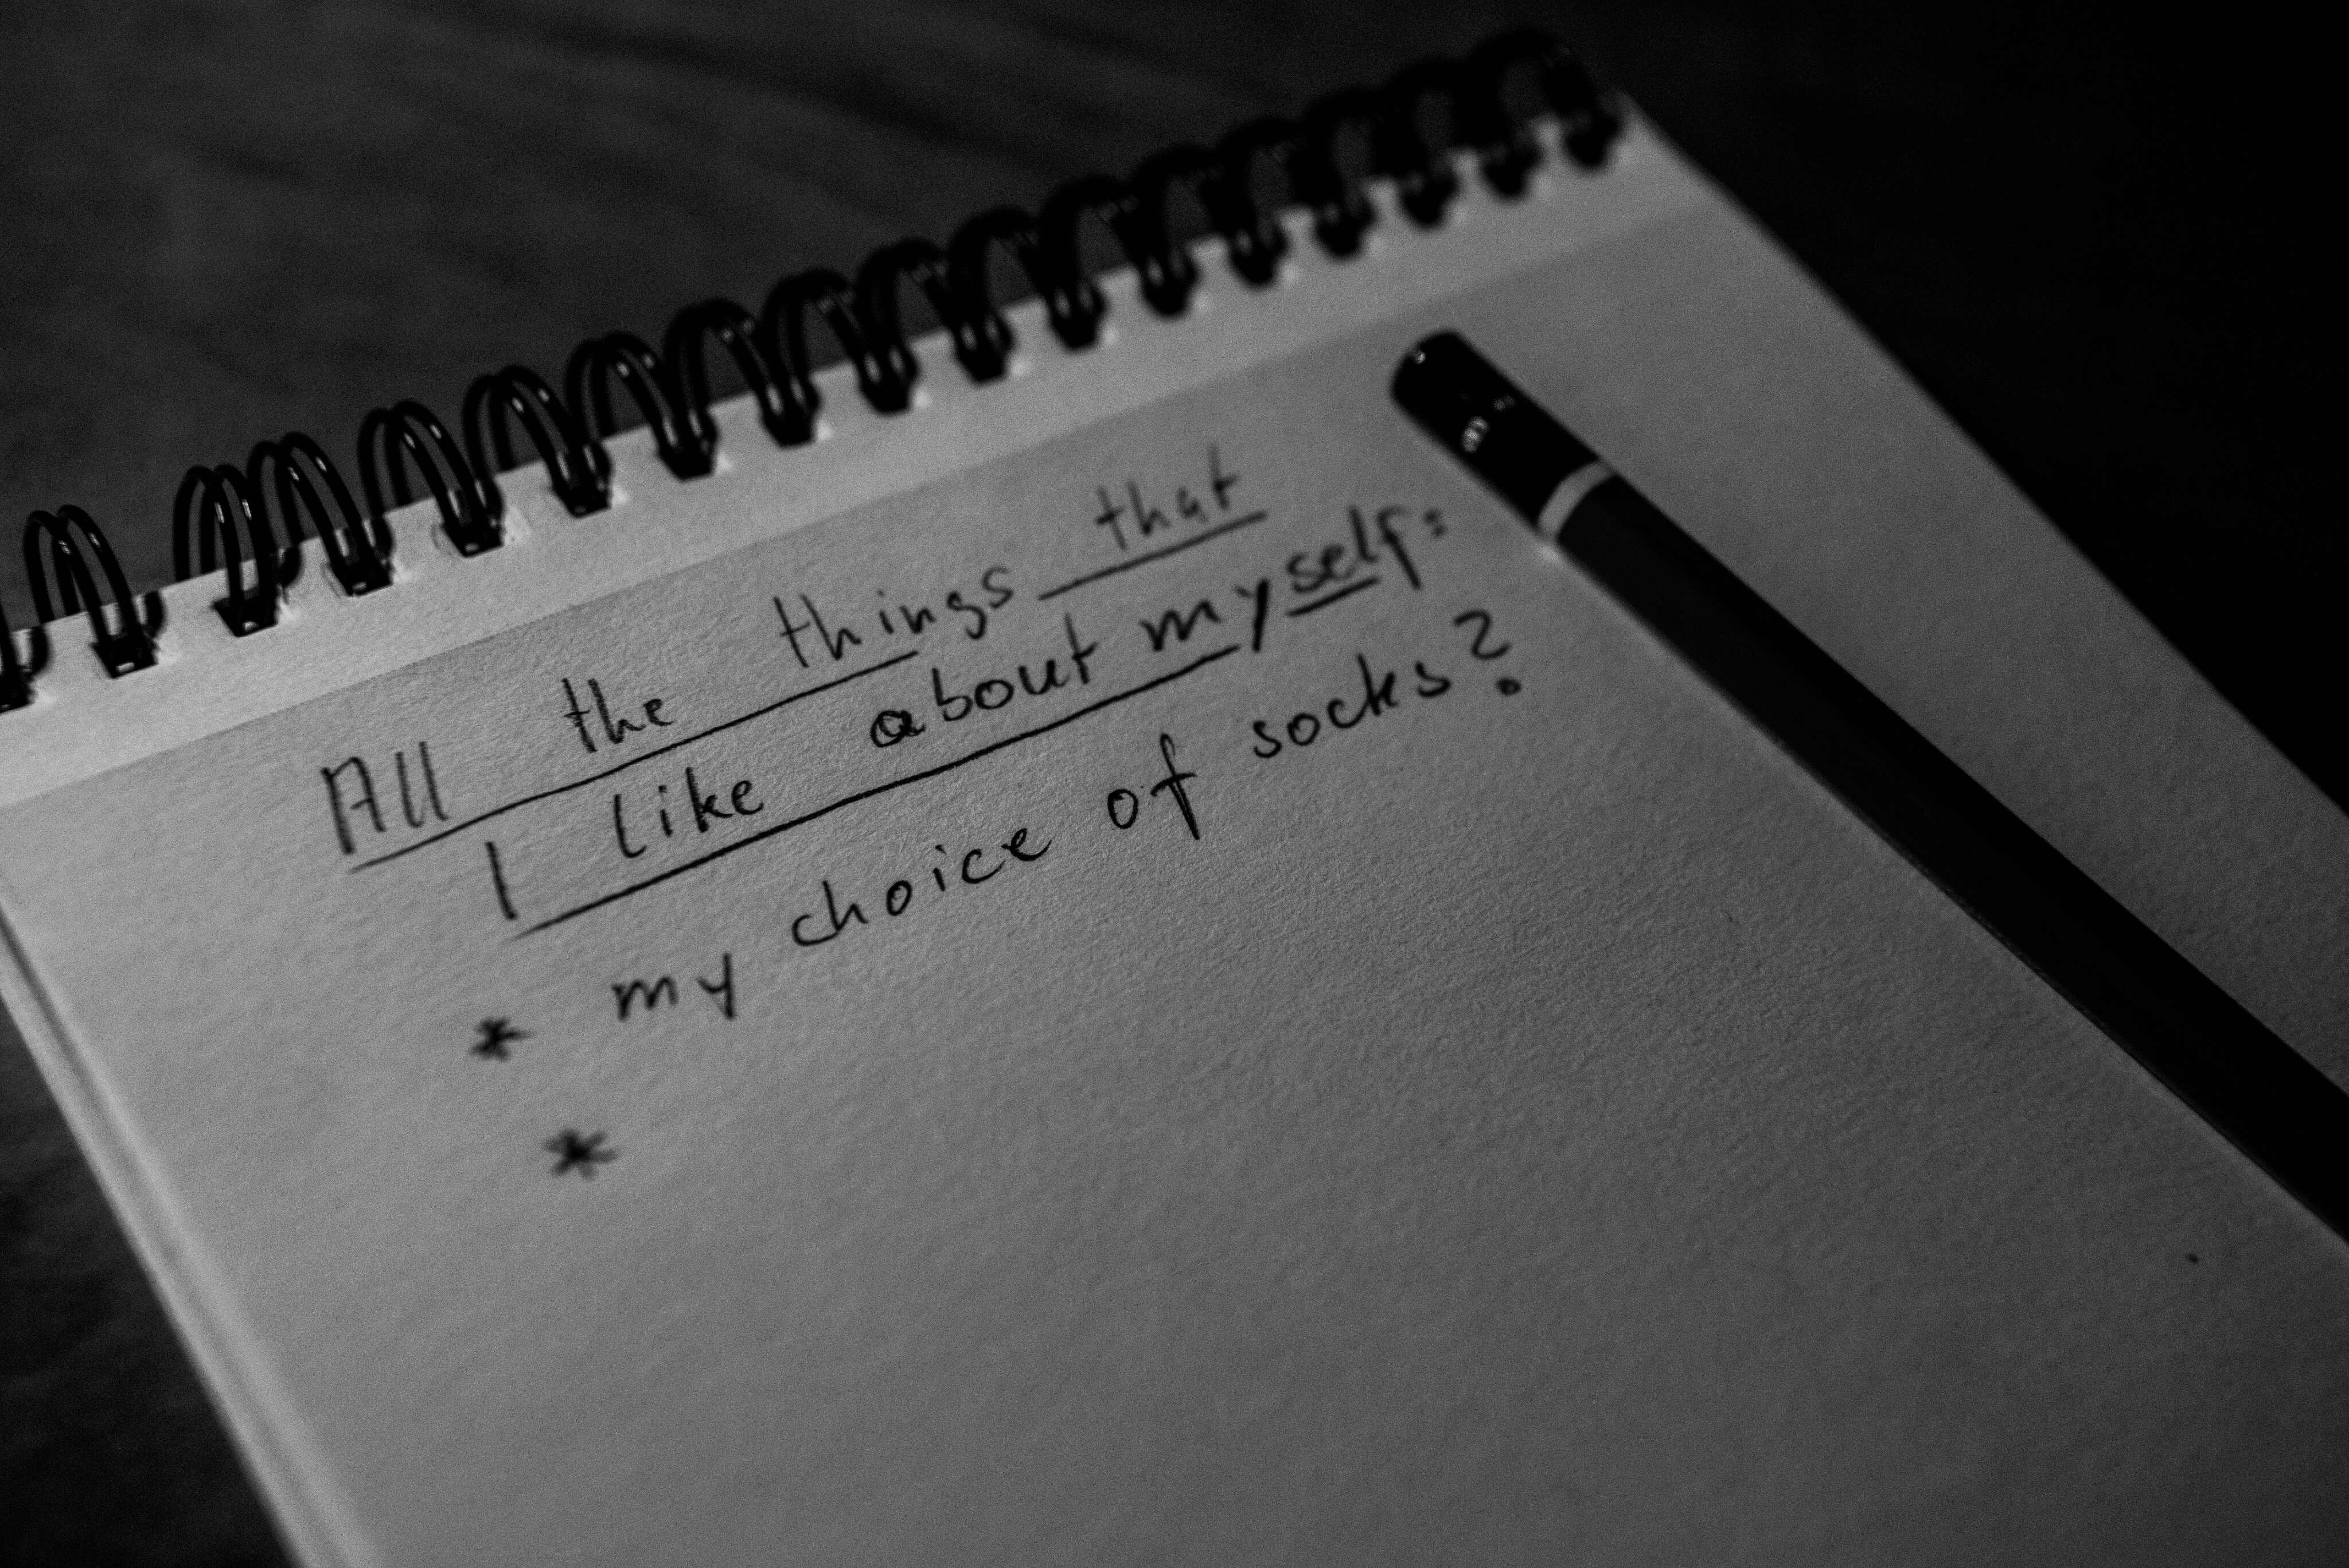 All the things that
I like about myself:
* my choice of socks?
*